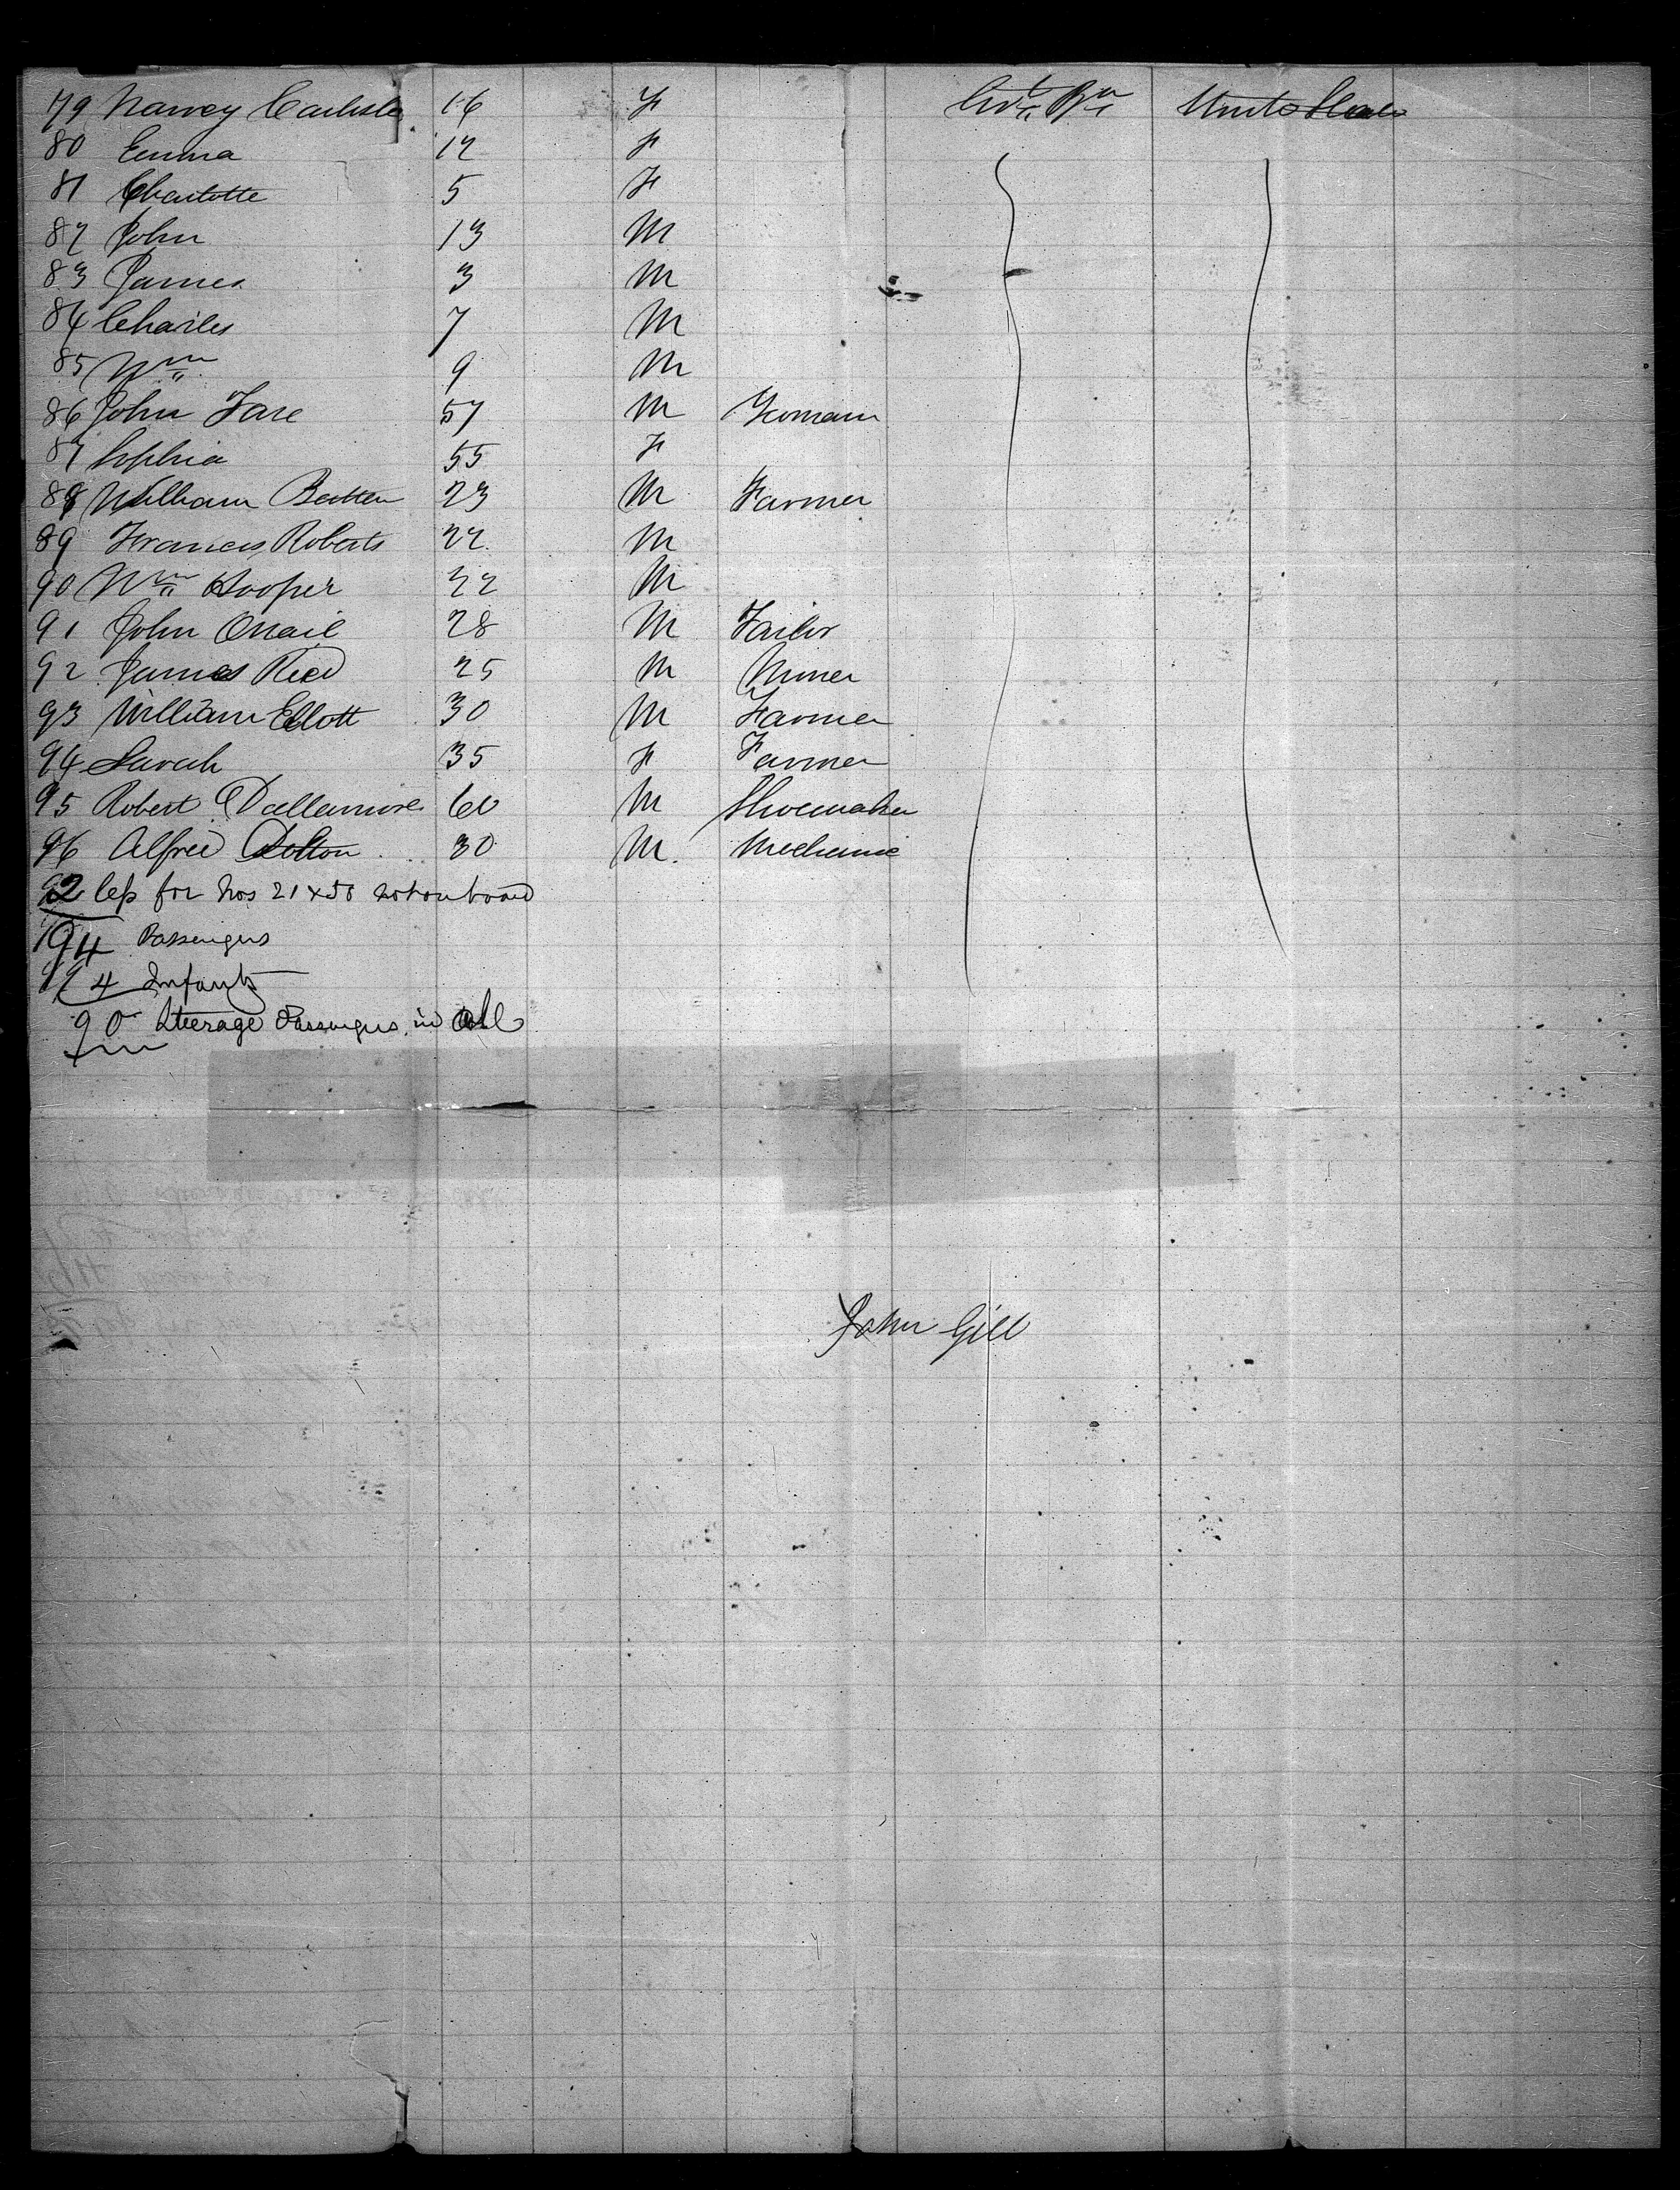 79 Nancy Carlisle 16 F Grt Bn United States
80 Emma 12 F
81 Charlotte 5 F
82 John 13 M
83 James 3 M
84 Charles 7 M
85 Wm 9 M
86 John Fare 57 M Yeoman
87 Sophia 55 F
88 William Batten 23 M Farmer
89 Francis Roberts 22 M
90 Wm Hooper 22 M
91 John Oneil 28 M Tailor
92 James Reed 25 M Miner
93 William Ellott 30 M Farmer
94 Sarah 35 F Farmer
95 Robert Dallamore 60 M Shoemaker
96 Alfred Dolton 30 M. Mechanic
2 less for Nos 21 x 50 not on board
94 Passengers
4 Infants
90 Steerage Passengers in all
John Gill